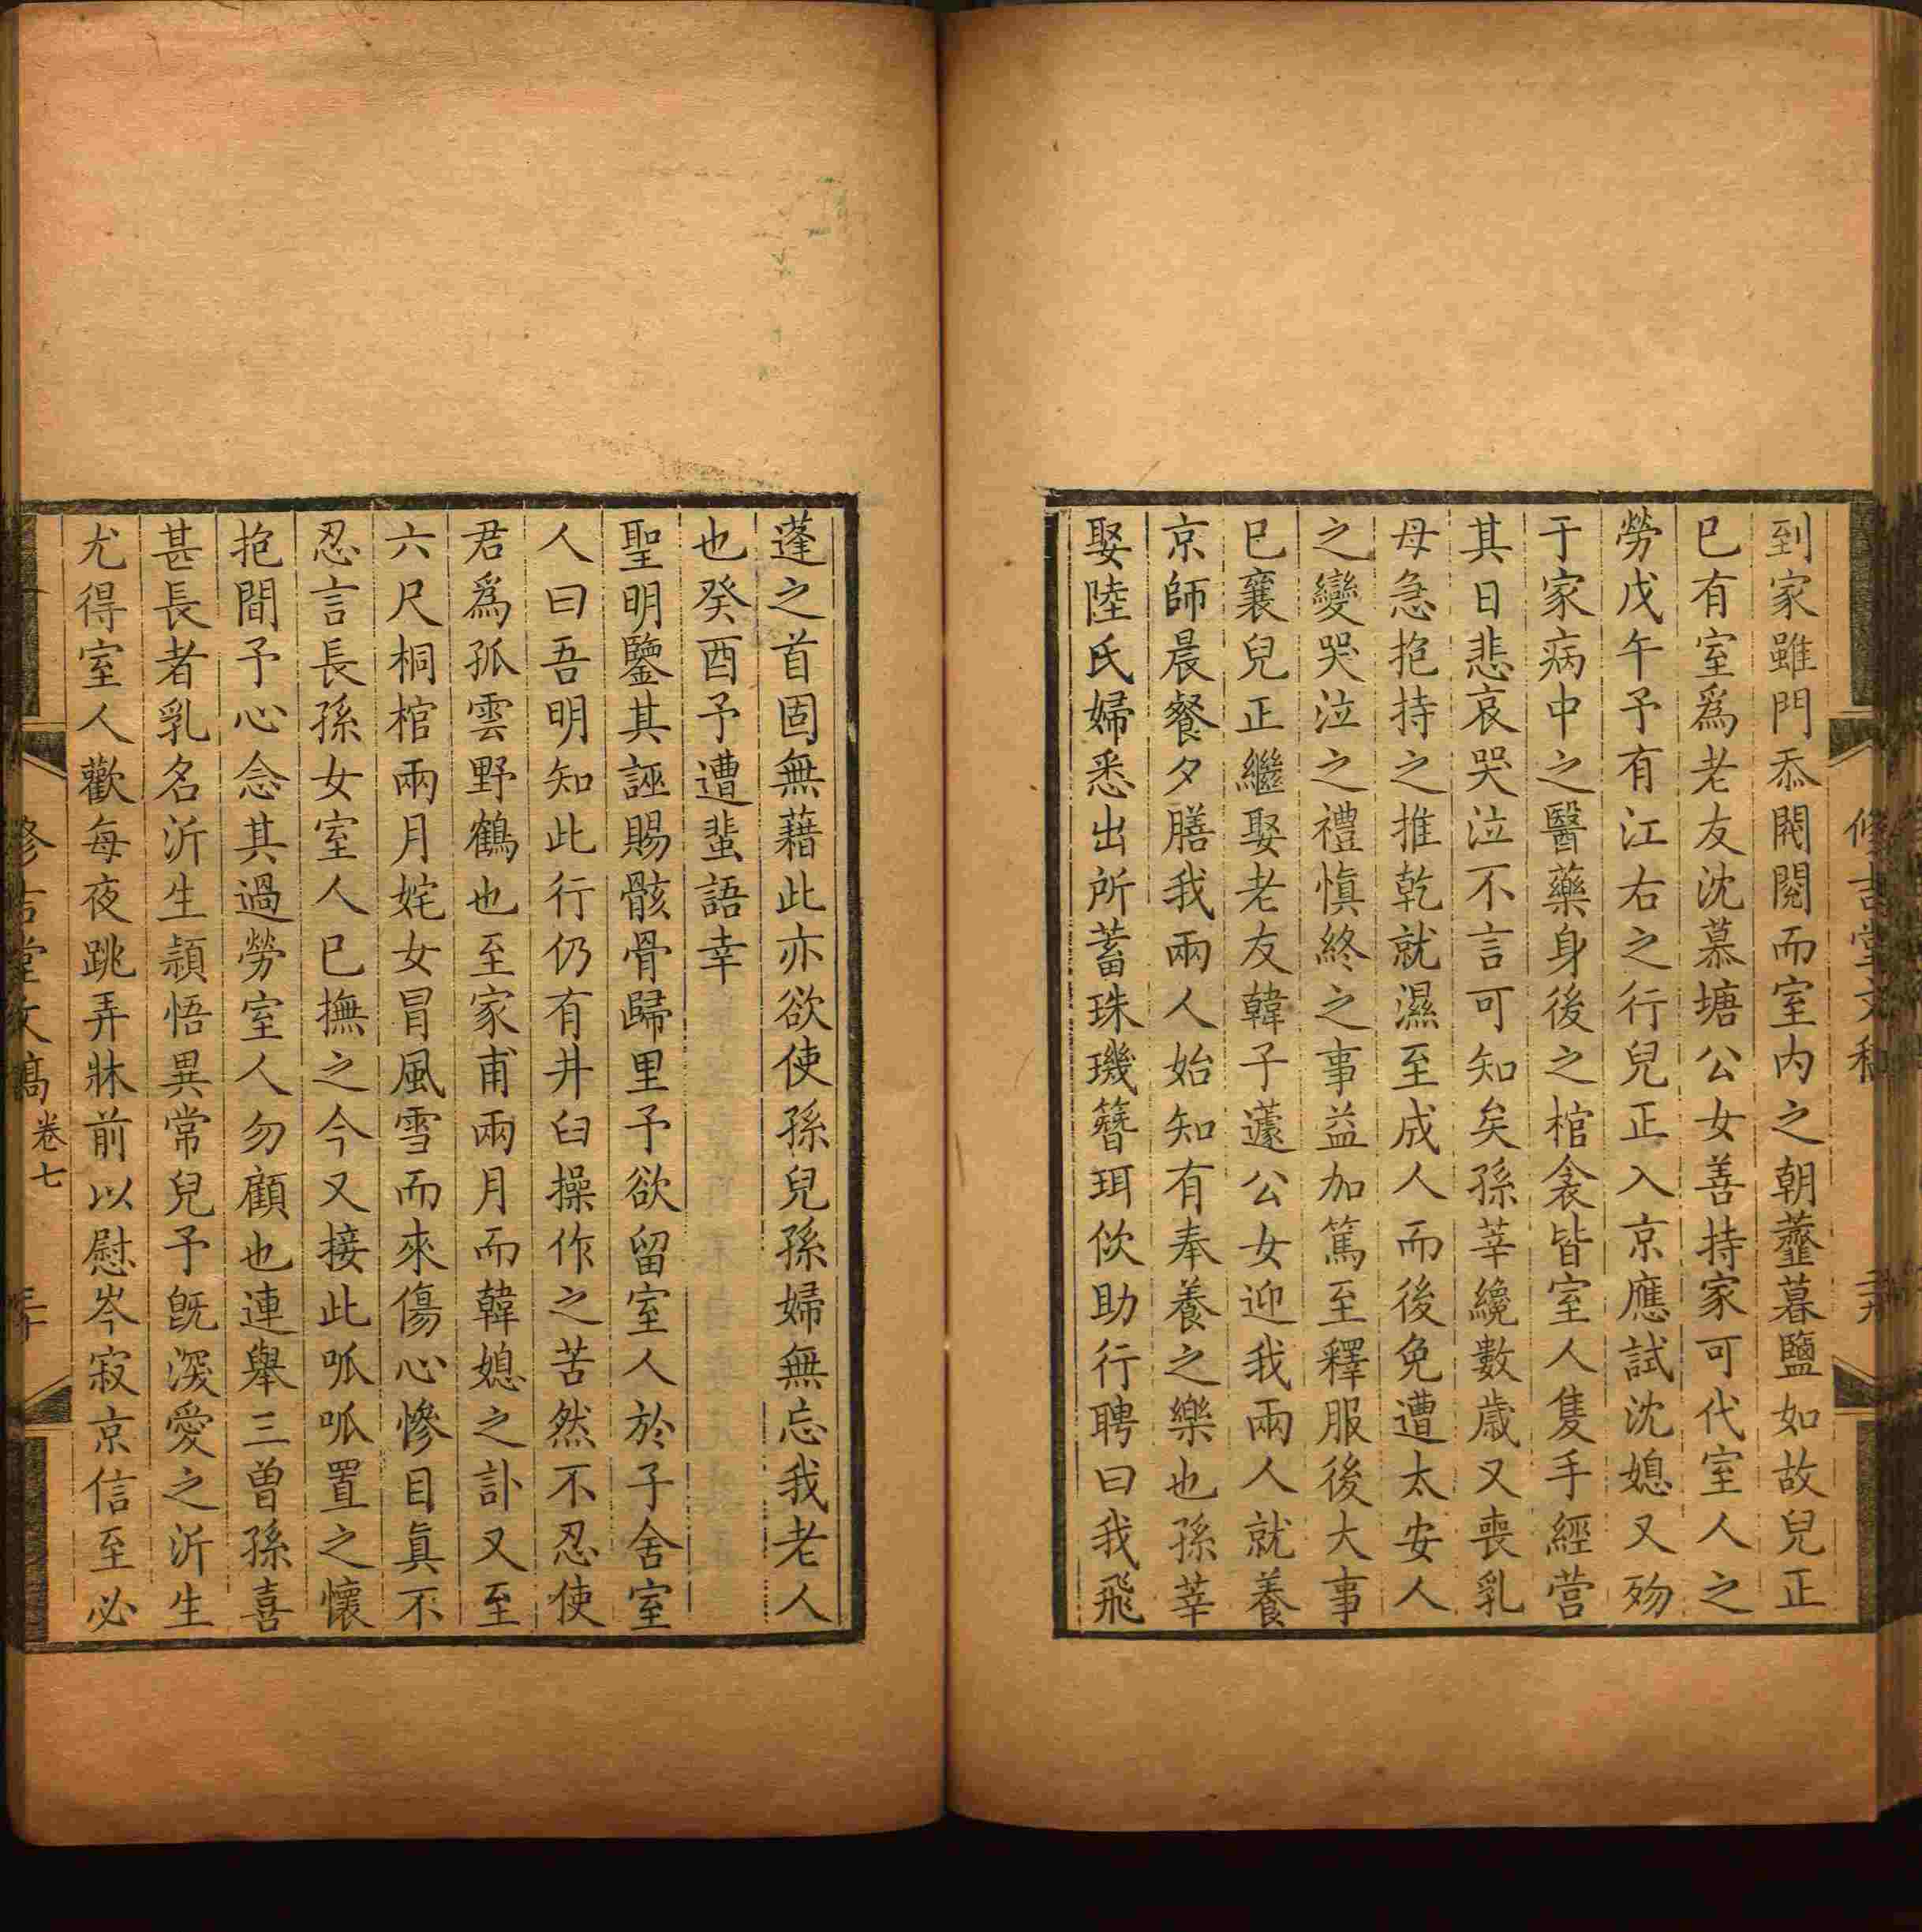 到家雖門忝閥閱而室内之朝虀暮鹽如故兒正
已有室爲老友沈慕塘公女善持家可代室人之
勞戊午予有江右之行兒正入京應試沈媳又歿
于家病中之醫藥身後之棺衾皆室人隻手經営
其日悲哀哭泣不言可知矣孫莘纔數歲又喪乳
母急抱持之推乾就濕至成人而後免遭太安人
之變哭泣之禮愼終之事益加篤至釋服後大事
已襄兒正繼娶老友韓子蘧公女迎我兩人就養
京師晨餐夕膳我兩人始知有奉養之樂也孫莘
娶陸氏婦悉出所蓄珠璣簪珥佽助行聘曰我飛
蓬之首固無藉此亦欲使孫兒孫婦無忘我老人
也癸酉予遭蜚語幸
聖明鑒其誣賜骸骨歸里予欲留室人於子舍室
人曰吾明知此行仍有井臼操作之苦然不忍使
君爲孤雲野鶴也至家甫兩月而韓媳之訃又至
六尺桐棺兩月姹女冒風雪而來傷心慘目眞不
忍言長孫女室人已撫之今又接此呱呱置之懷
抱間予心念其過勞室人勿顧也連舉三曾孫喜
甚長者乳名沂生頴悟異常兒予旣深愛之沂生
尤得室人歡每夜跳弄牀前以慰岑寂京信至必
修吉堂文稿 卷七 三十